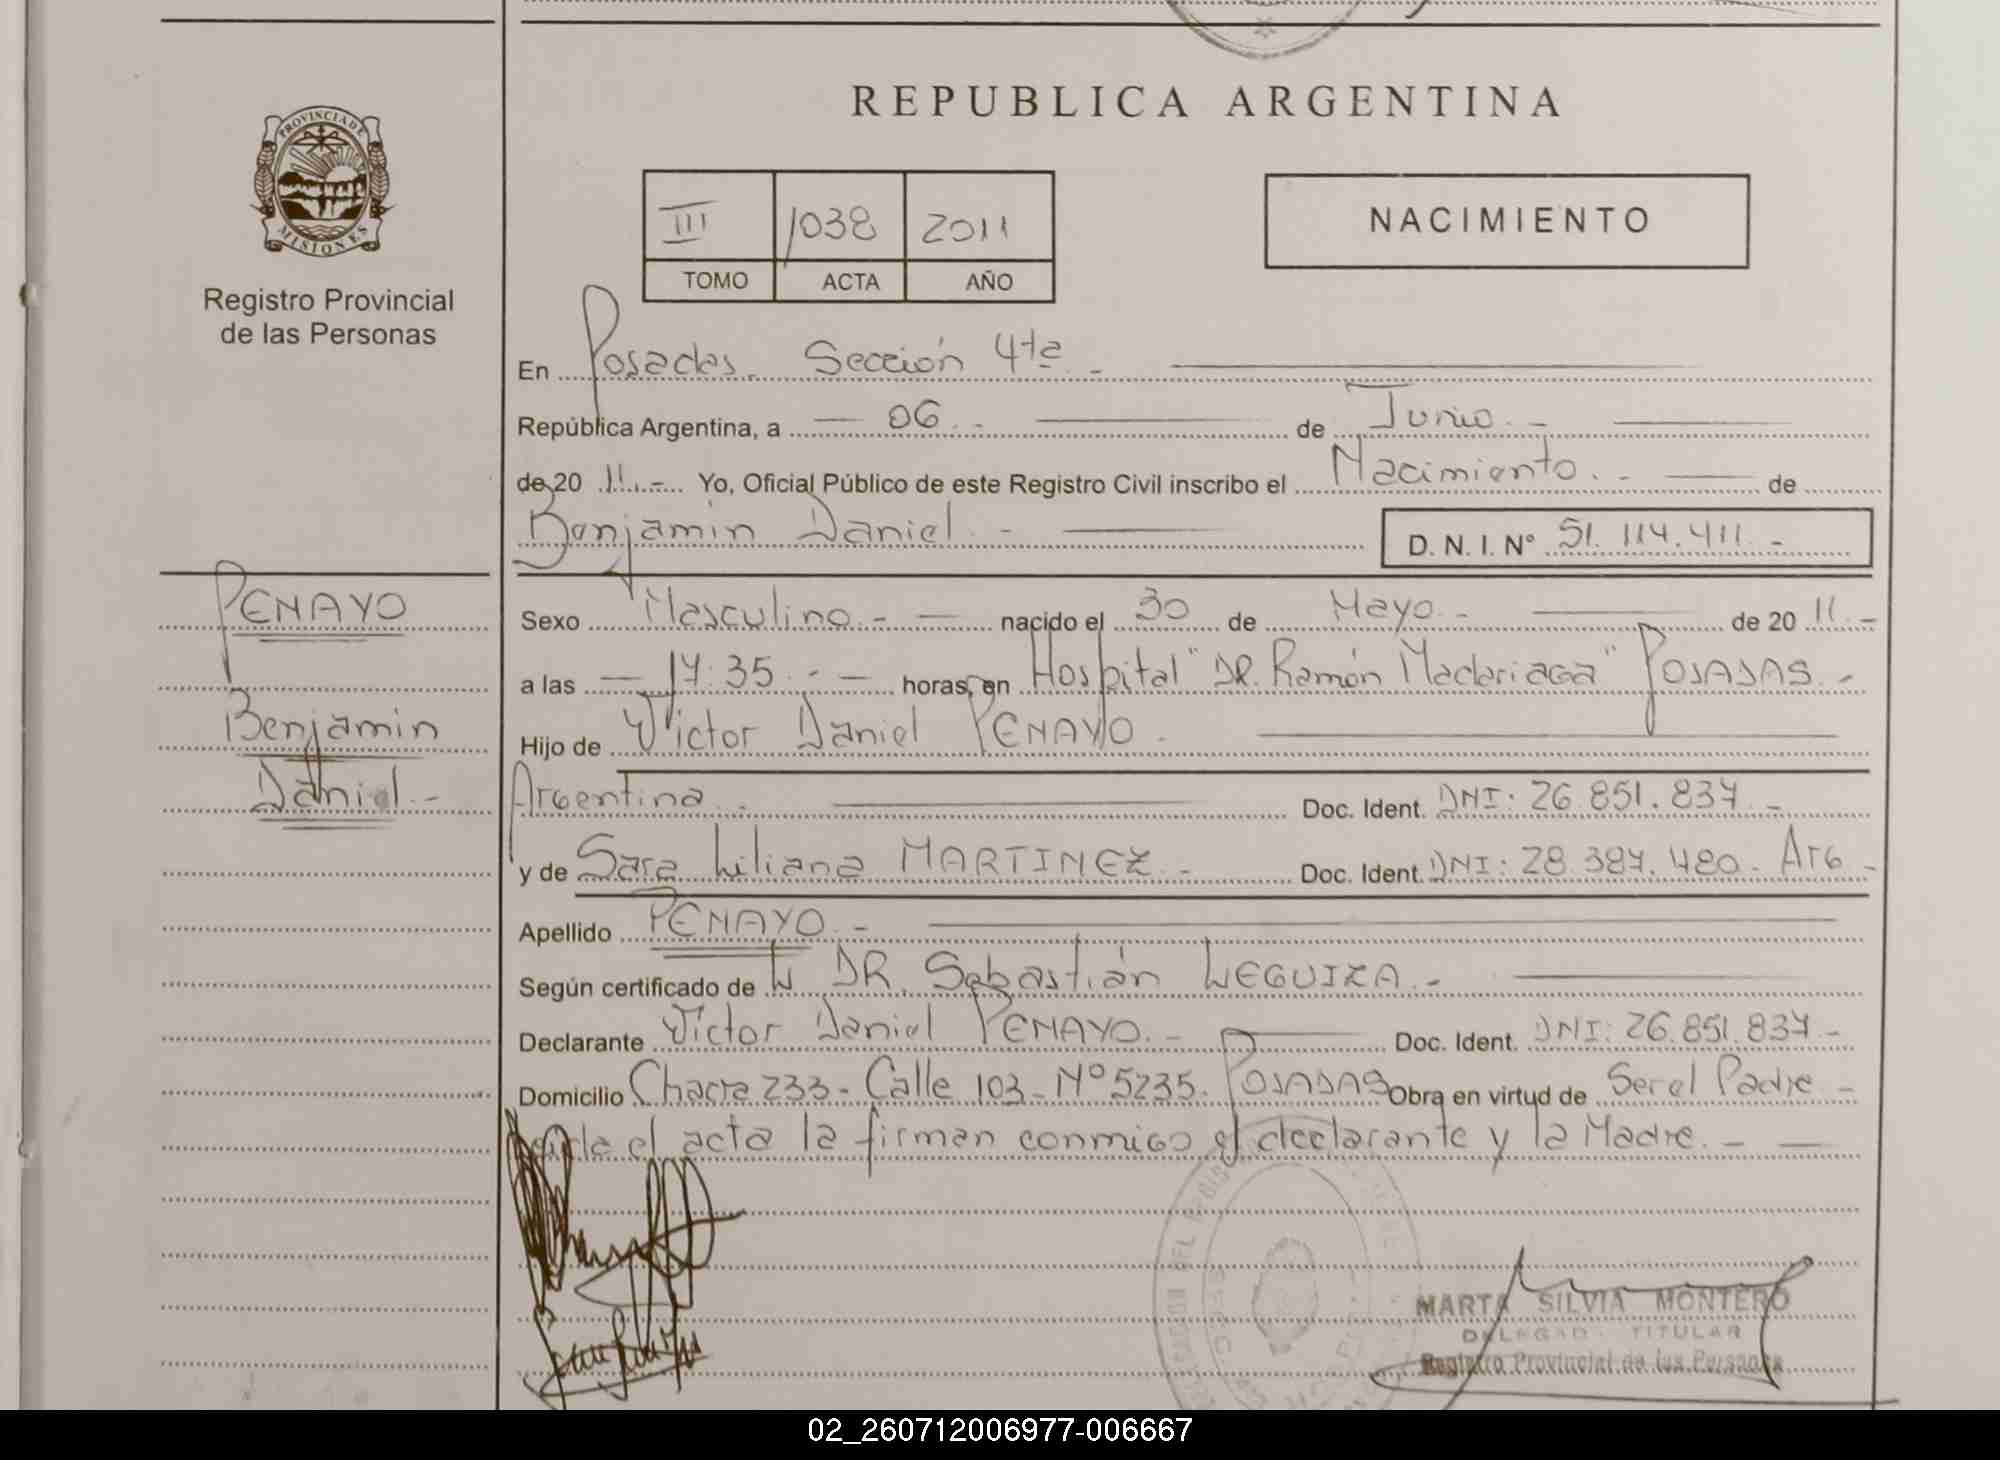 REPUBLICA ARGENTINA
PROVINCIA DE
MISIONES
Registro Provincial
de las Personas
III 1038 2011
TOMO ACTA AÑO
NACIMIENTO
En Posadas. Sección 4ta. -
República Argentina, a — 06. - de Junio. -
de 20 11.- Yo, Oficial Público de este Registro Civil inscribo el Nacimiento. - de
Benjamin Daniel. - D. N. I. N° 51.114.411. -
PENAYO
Benjamin
Daniel.-
Sexo Masculino. - — nacido el 30 de Mayo. - de 20 11.-
a las — 17:35. - — horas, en Hospital "DR. Ramón Madariaga" POSADAS. -
Hijo de Victor Daniel PENAYO. -
Argentina. - Doc. Ident. DNI: 26.851.837. -
y de Sara Liliana MARTINEZ. - Doc. Ident. DNI: 28.387.480. Arg. -
Apellido PENAYO. -
Según certificado de DR. Sebastián LEGUIZA. -
Declarante Victor Daniel PENAYO. - Doc. Ident. DNI: 26.851.837 -
Domicilio Chacra 233 - Calle 103 - N° 5235. POSADAS Obra en virtud de Ser el Padre -
el acta la firman conmigo el declarante y la Madre. - —
MARTA SILVIA MONTERO
DELEGAD TITULAR
Registro Provincial de las Personas
02_260712006977-006667